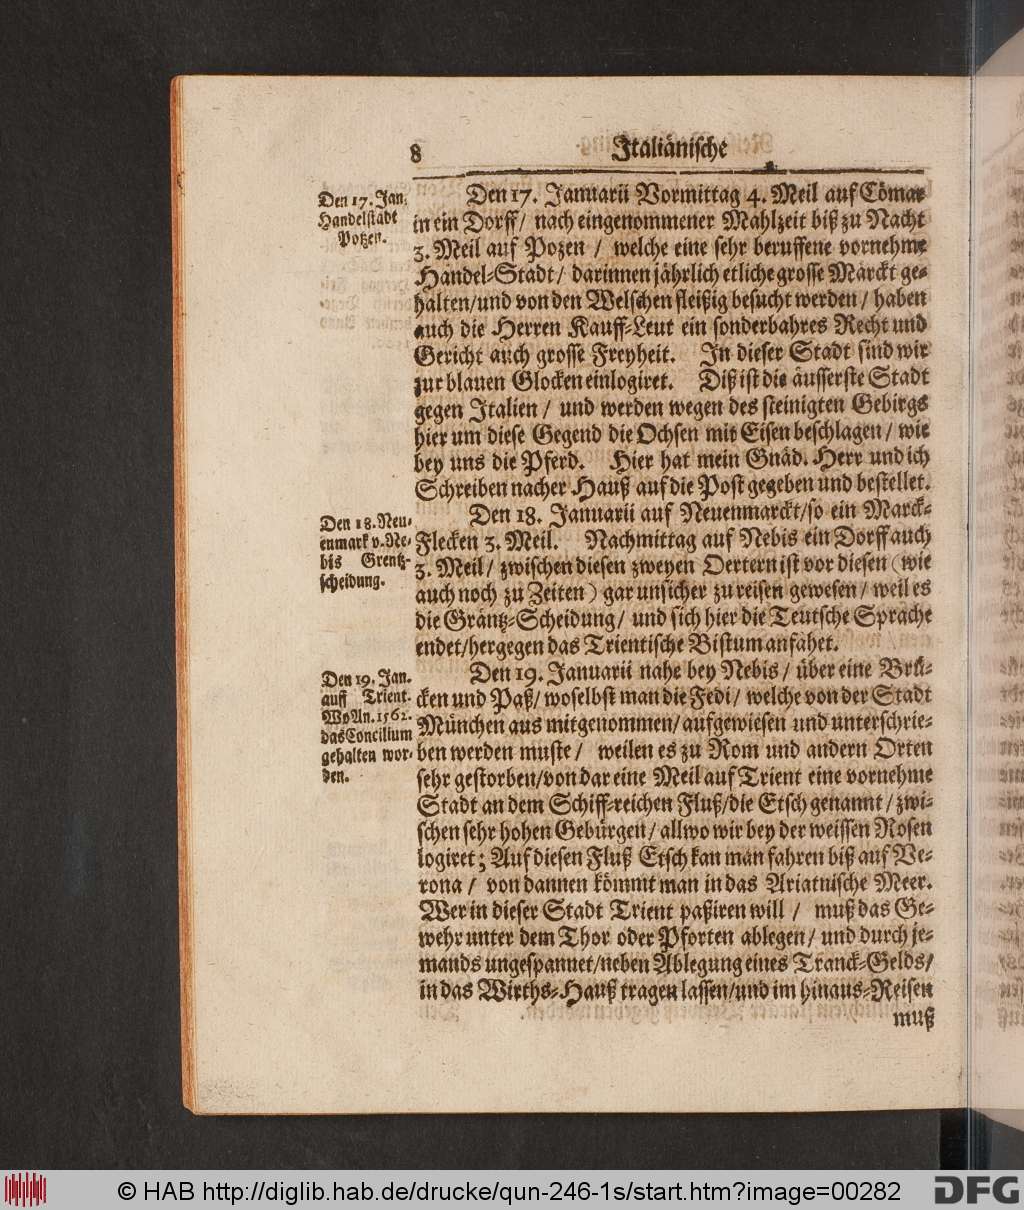 8 Italiänische
Den 17. Jan.
Handelstadt
Potzen.
Den 17. Januarii Vormittag 4. Meil auf Cömar
in ein Dorff / nach eingenommener Mahlzeit biß zu Nacht
3. Meil auf Pozen / welche eine sehr beruffene vornehme
Handel-Stadt / darinnen jährlich etliche grosse Märckt ge-
halten/und von den Welschen fleißig besucht werden / haben
auch die Herren Kauff-Leut ein sonderbahres Recht und
Gericht auch grosse Freyheit. In dieser Stadt sind wir
zur blauen Glocken einlogiret. Diß ist die äusserste Stadt
gegen Italien / und werden wegen des steinigten Gebirgs
hier um diese Gegend die Ochsen mit Eisen beschlagen / wie
bey uns die Pferd. Hier hat mein Gnäd. Herr und ich
Schreiben nacher Hauß auf die Post gegeben und bestellet.
Den 18. Neu-
enmark v. Ne-
bis Grentz-
scheidung.
Den 18. Januarii auf Neuenmarckt/so ein Marck-
Flecken 3. Meil. Nachmittag auf Nebis ein Dorff auch
3. Meil / zwischen diesen zweyen Oertern ist vor diesen (wie
auch noch zu Zeiten) gar unsicher zu reisen gewesen / weil es
die Gräntz-Scheidung / und sich hier die Teutsche Sprache
endet/hergegen das Trientische Bistum anfahet.
Den 19. Jan.
auff Trient.
Wo An. 1562.
das Concilium
gehalten wor-
den.
Den 19. Januarii nahe bey Nebis / über eine Brü-
cken und Paß/ woselbst man die Fedi / welche von der Stadt
München aus mitgenommen/ aufgewiesen und unterschrie-
ben werden muste / weilen es zu Rom und andern Orten
sehr gestorben/von dar eine Meil auf Trient eine vornehme
Stadt an dem Schiff-reichen Fluß/die Etsch genannt / zwi-
schen sehr hohen Gebürgen / allwo wir bey der weissen Rosen
logiret; Auf diesen Fluß Etsch kan man fahren biß auf Ve-
rona / von dannen kömmt man in das Ariatnische Meer.
Wer in dieser Stadt Trient paßiren will / muß das Ge-
wehr unter dem Thor oder Pforten ablegen / und durch je-
mands ungespannet/neben Ablegung eines Tranck-Gelds/
in das Wirths-Hauß tragen lassen/und im hinaus-Reisen
muß
© HAB http://diglib.hab.de/drucke/qun-246-1s/start.htm?image=00282
DFG